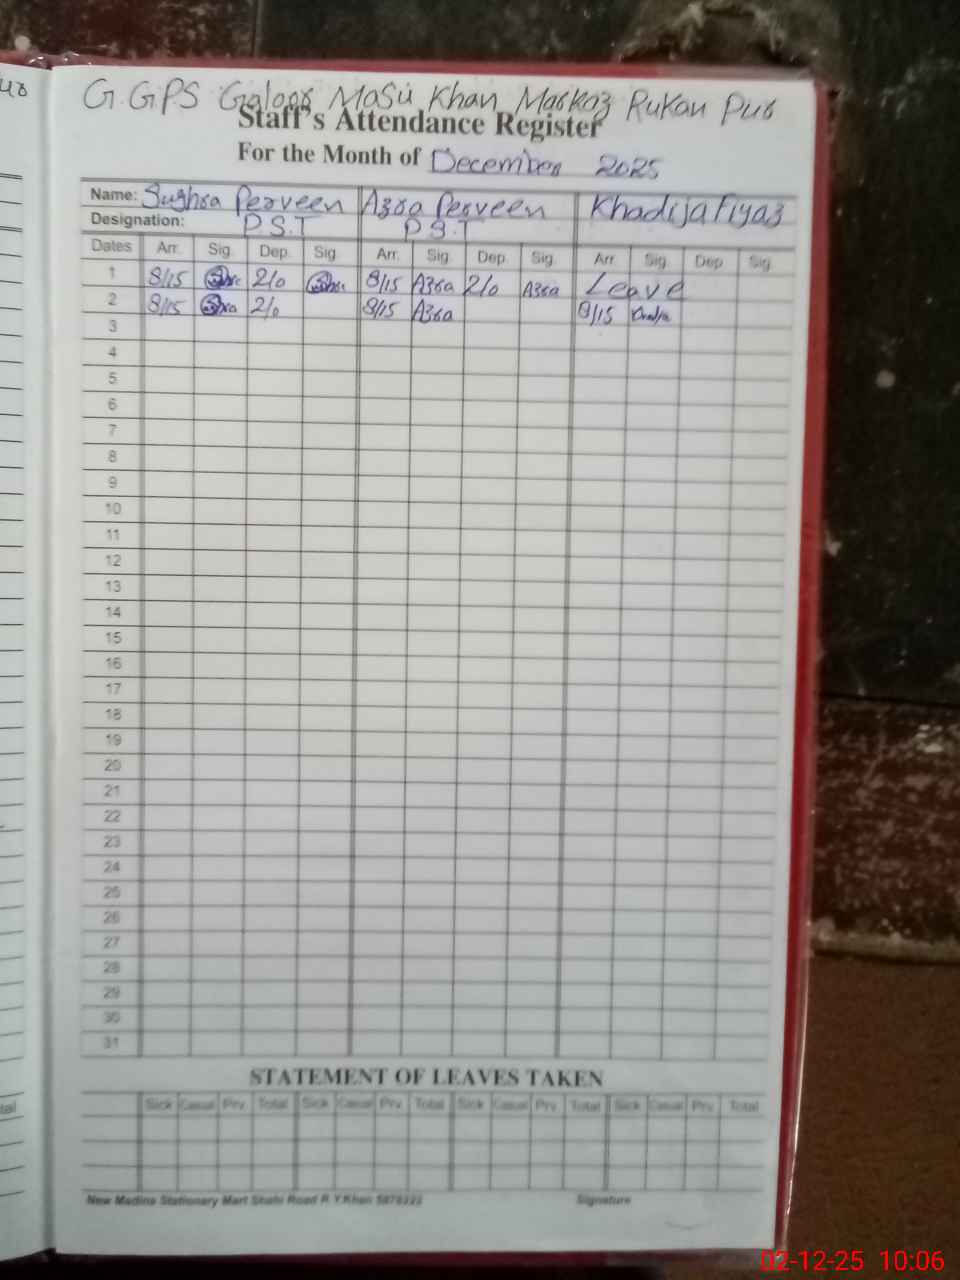 G.GPS Galoor Masu Khan Markaz Rukan Pur
Staff's Attendance Register
For the Month of December 2025
Name: Sughra Perveen Azra Perveen Khadija Fiyaz
Designation: P.S.T P.S.T
Dates Arr. Sig. Dep. Sig. Arr. Sig. Dep. Sig. Arr. Sig. Dep. Sig.
1 8/15 2/0 8/15 Azra 2/0 Azra Leave
2 8/15 2/0 8/15 Azra 8/15
3
4
5
6
7
8
9
10
11
12
13
14
15
16
17
18
19
20
21
22
23
24
25
26
27
28
29
30
31
STATEMENT OF LEAVES TAKEN
Sick Casual Prv. Total Sick Casual Prv. Total Sick Casual Prv. Total Sick Casual Prv. Total
New Madina Stationary Mart Shahi Road R.Y.Khan Signature
02-12-25 10:06